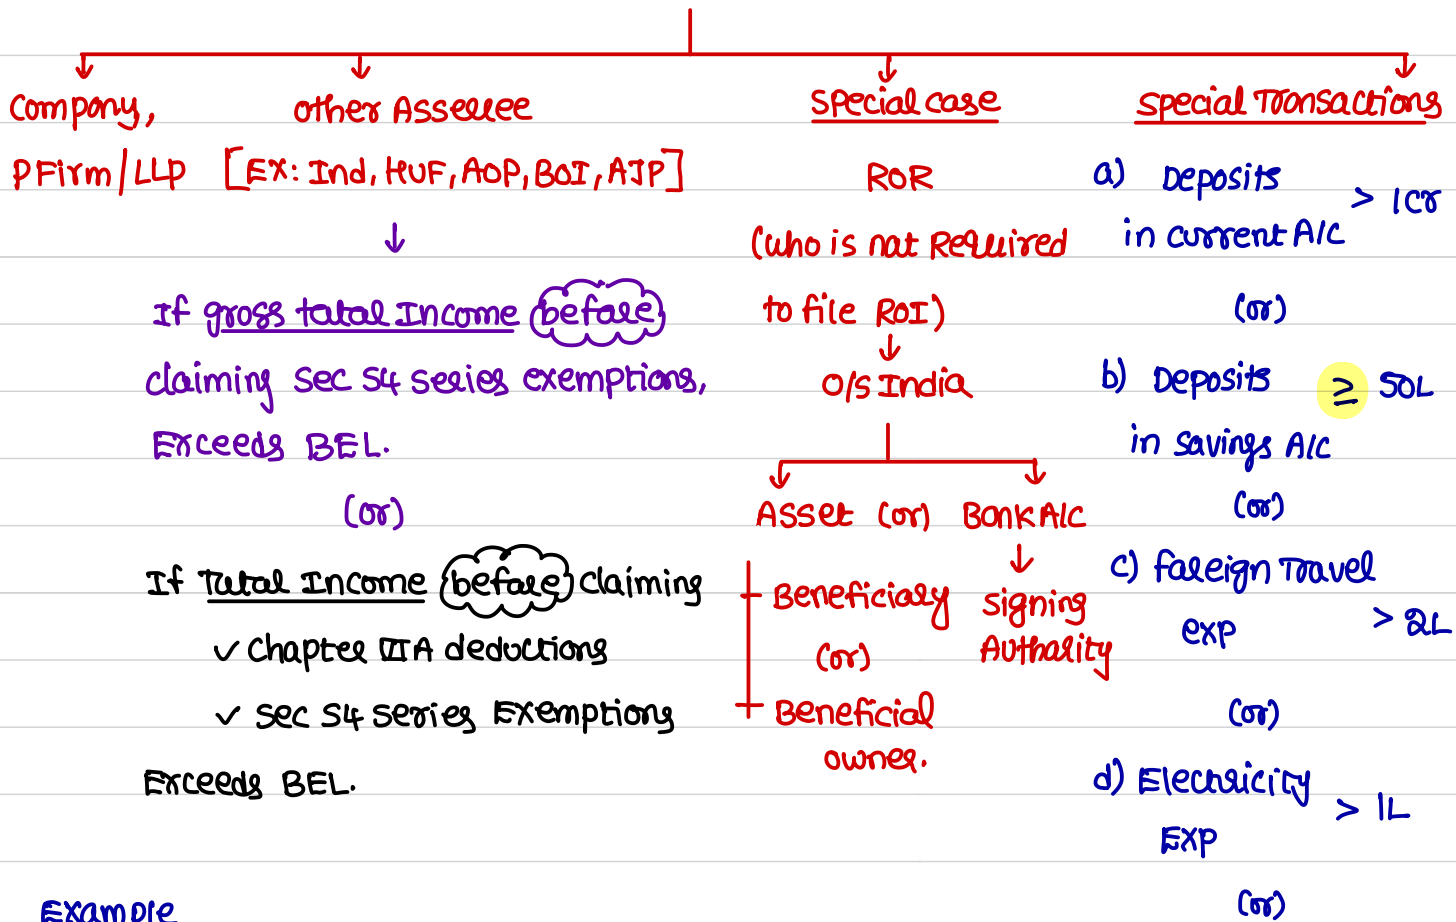 Company,
PFirm/LLP
other Assessee
[Ex: Ind, HUF, AOP, BOI, AJP]
If gross total Income before
claiming sec 54 series exemptions,
Exceeds BEL.
(or)
If Total Income before claiming
✓ Chapter VIA deductions
✓ sec 54 series Exemptions
Exceeds BEL.
Special case
ROR
(who is not Required
to file ROI)
O/s India
Asset (or) Bank A/c
Beneficiary
(or)
Beneficial
owner.
signing
Authority
Special Transactions
a) Deposits
in current A/c > 1Cr
(or)
b) Deposits ≥ 50L
in savings A/c
(or)
c) foreign Travel
exp > 2L
(or)
d) Electricity
Exp > 1L
(or)
Example